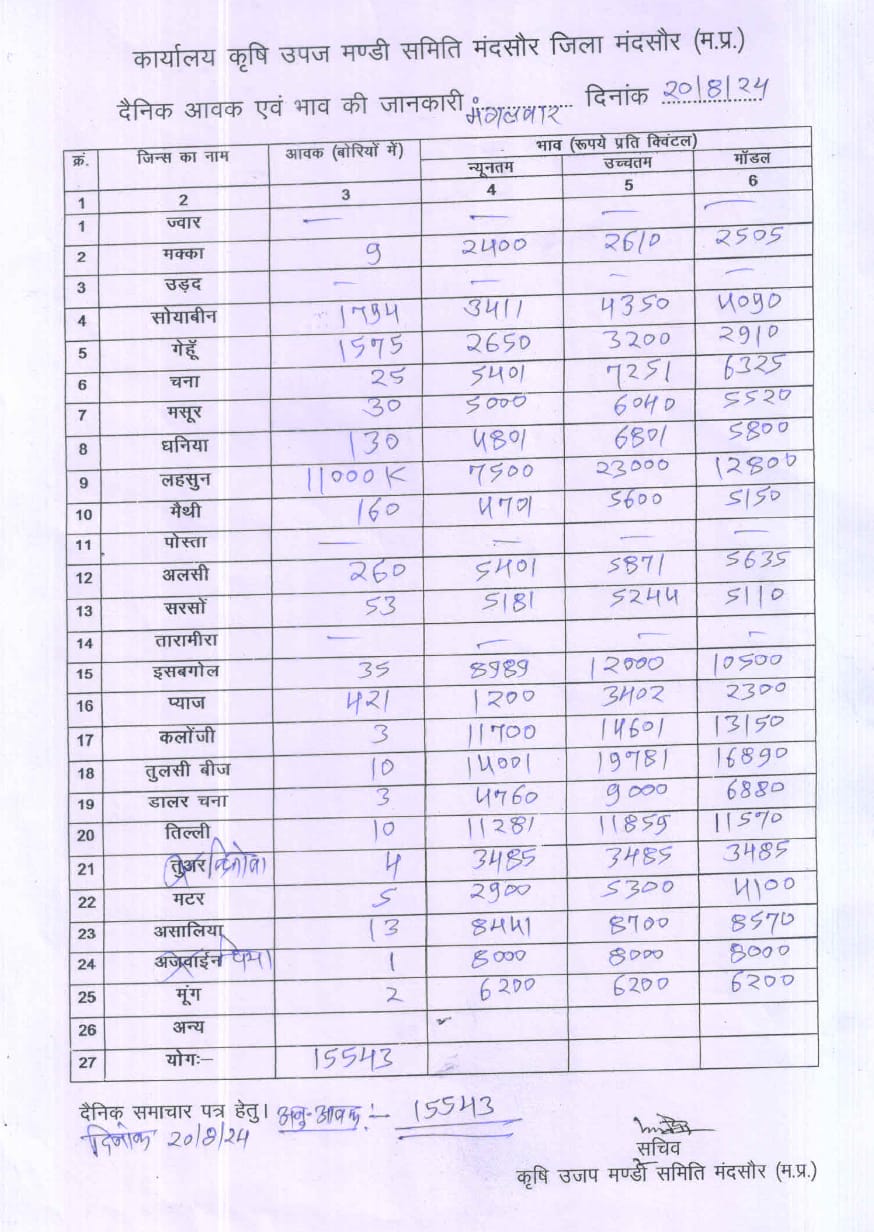 कार्यालय कृषि उपज मण्डी समिति मंदसौर जिला मंदसौर (म.प्र.)
दैनिक आवक एवं भाव की जानकारी मंगलवार दिनांक 20/8/24
क्रं. जिन्स का नाम आवक (बोरियों में) भाव (रूपये प्रति क्विंटल)
न्यूनतम उच्चतम मॉडल
1 2 3 4 5 6
1 ज्वार — — — —
2 मक्का 9 2400 2610 2505
3 उड़द — — — —
4 सोयाबीन 1794 3411 4350 4090
5 गेहूँ 1575 2650 3200 2910
6 चना 25 5401 7251 6325
7 मसूर 30 5000 6040 5520
8 धनिया 130 4801 6801 5800
9 लहसुन 11000 K 7500 23000 12800
10 मैथी 160 4701 5600 5150
11 पोस्ता — — — —
12 अलसी 260 5401 5871 5635
13 सरसों 53 5181 5244 5110
14 तारामीरा — — — —
15 इसबगोल 35 8989 12000 10500
16 प्याज 421 1200 3402 2300
17 कलोंजी 3 11700 14601 13150
18 तुलसी बीज 10 14001 19781 16890
19 डालर चना 3 4760 9000 6880
20 तिल्ली 10 11281 11859 11570
21 तुअर 4 3485 3485 3485
22 मटर 5 2900 5300 4100
23 असालिया 13 8441 8700 8570
24 अजवाईन चिया 1 8000 8000 8000
25 मूंग 2 6200 6200 6200
26 अन्य
27 योगः– 15543
दैनिक समाचार पत्र हेतु। अनु-आवक :- 15543
दिनांक 20/8/24
सचिव
कृषि उजप मण्डी समिति मंदसौर (म.प्र.)